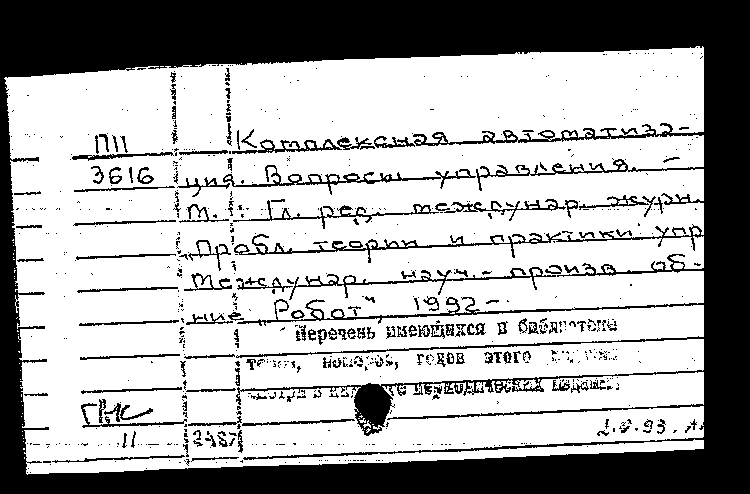 П11
3616
Комплексная автоматиза-
ция. Вопросы управления. –
М.: Гл. ред. междунар. журн.
„Пробл. теории и практики упр
Междунар. науч.- произв. об-
ние „Робот“, 1992 –
Перечень имеющихся в библиотеке
томов, номеров, годов этого
смотри в периодических изданий
11
2487